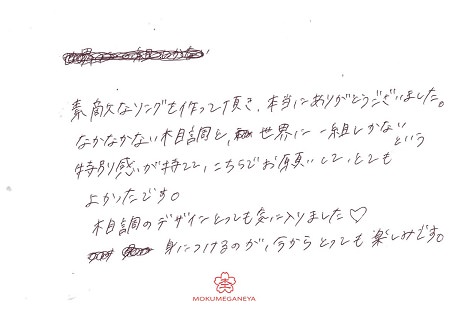 素敵なリングを作って頂き、本当にありがとうございました。
なかなかない木目調と、世界に一組しかないという
特別感が持てて、こちらでお願いして、とても
よかったです。
木目調のデザインとっても気に入りました♡
身につけるのが、今からとっても楽しみです。
MOKUMEGANEYA